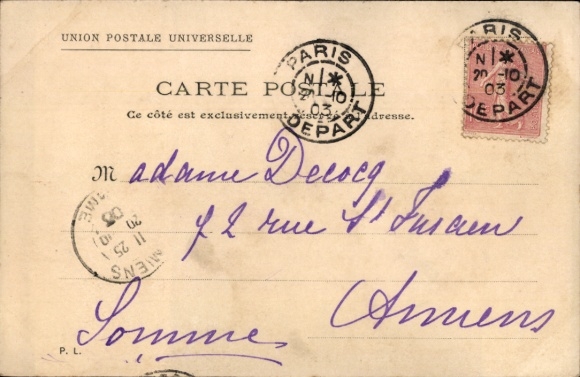 UNION POSTALE UNIVERSELLE
PARIS
N 1 *
20 -10
03
DEPART
PARIS
N 1 *
20 -10
03
DEPART
CARTE POSTALE
Ce côté est exclusivement réservé à l'adresse.
Madame Decocq
72 rue St Fuscien
Amiens
Somme
11 25
20
03
AMIENS
P. L.